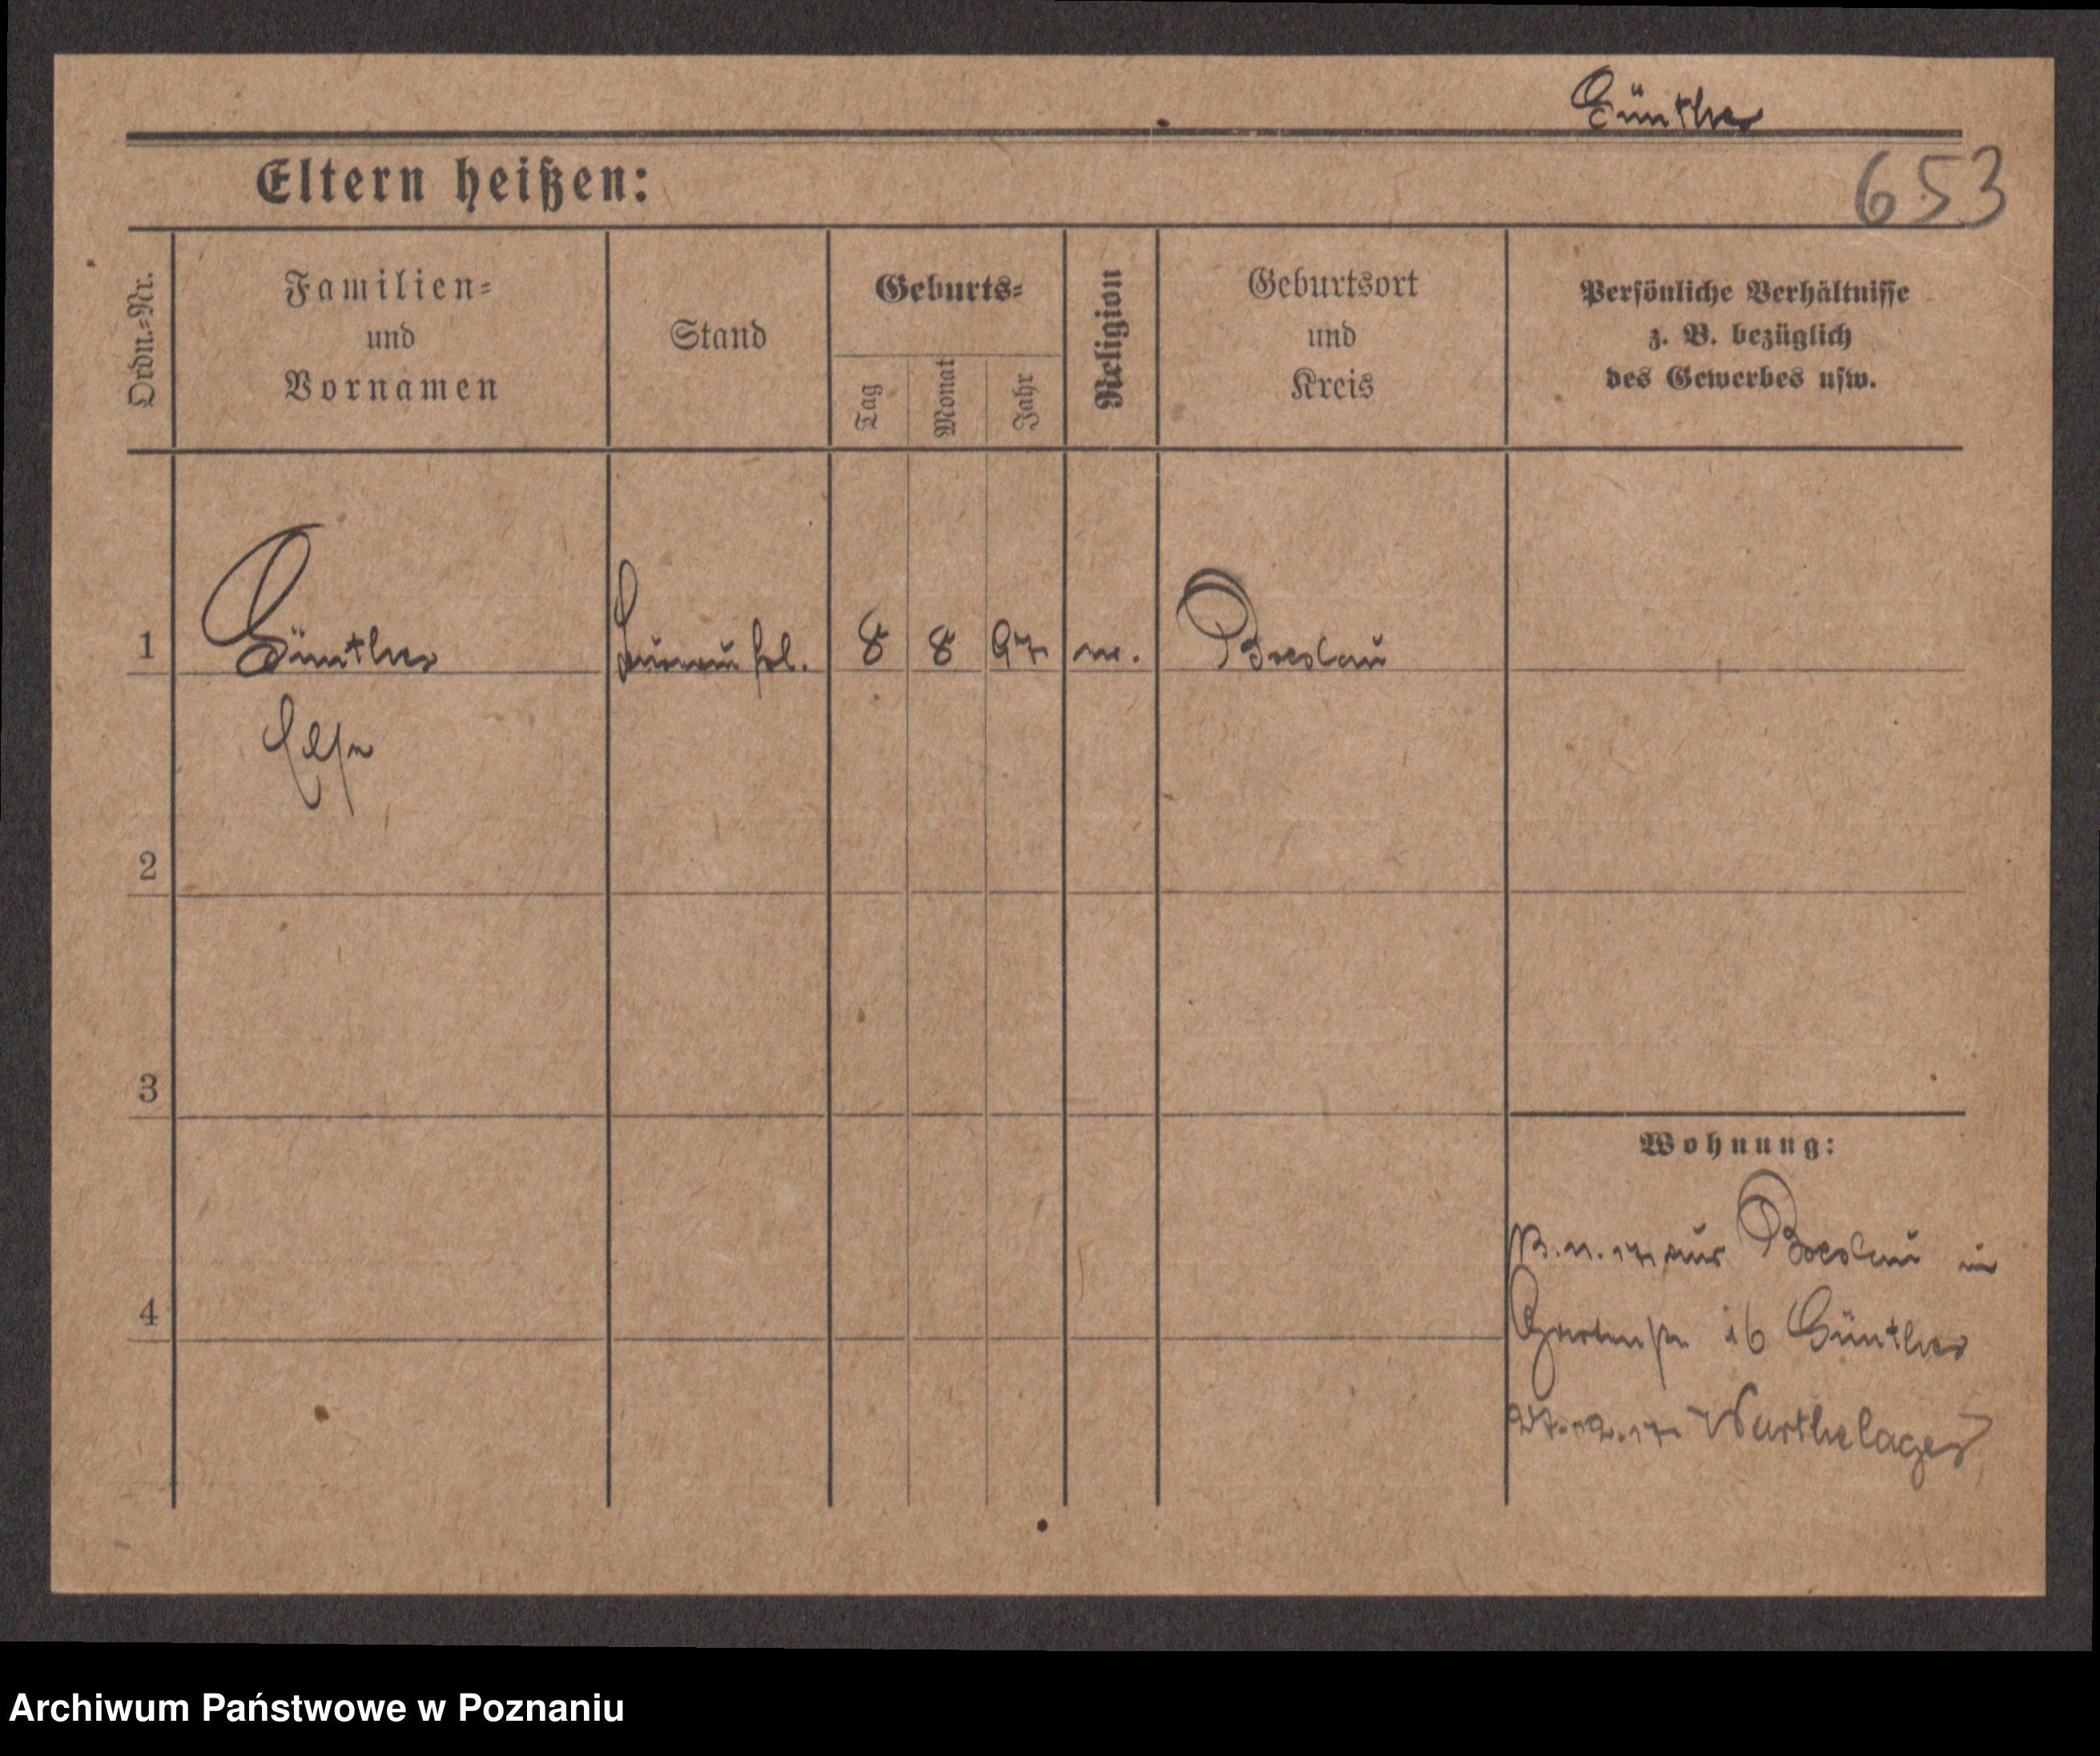 Günther
Eltern heißen:
653
Ordn.=Nr.
Familien=
und
Vornamen
Stand
Geburts=
Tag
Monat
Jahr
Religion
Geburtsort
und
Kreis
Persönliche Verhältnisse
z. B. bezüglich
des Gewerbes usw.
1
Günther
8
8
97
Breslau
Else
2
3
Wohnung:
aus Breslau in
4
Gartenstr 16 Günther
27.12.17 Warthelager
Archiwum Państwowe w Poznaniu